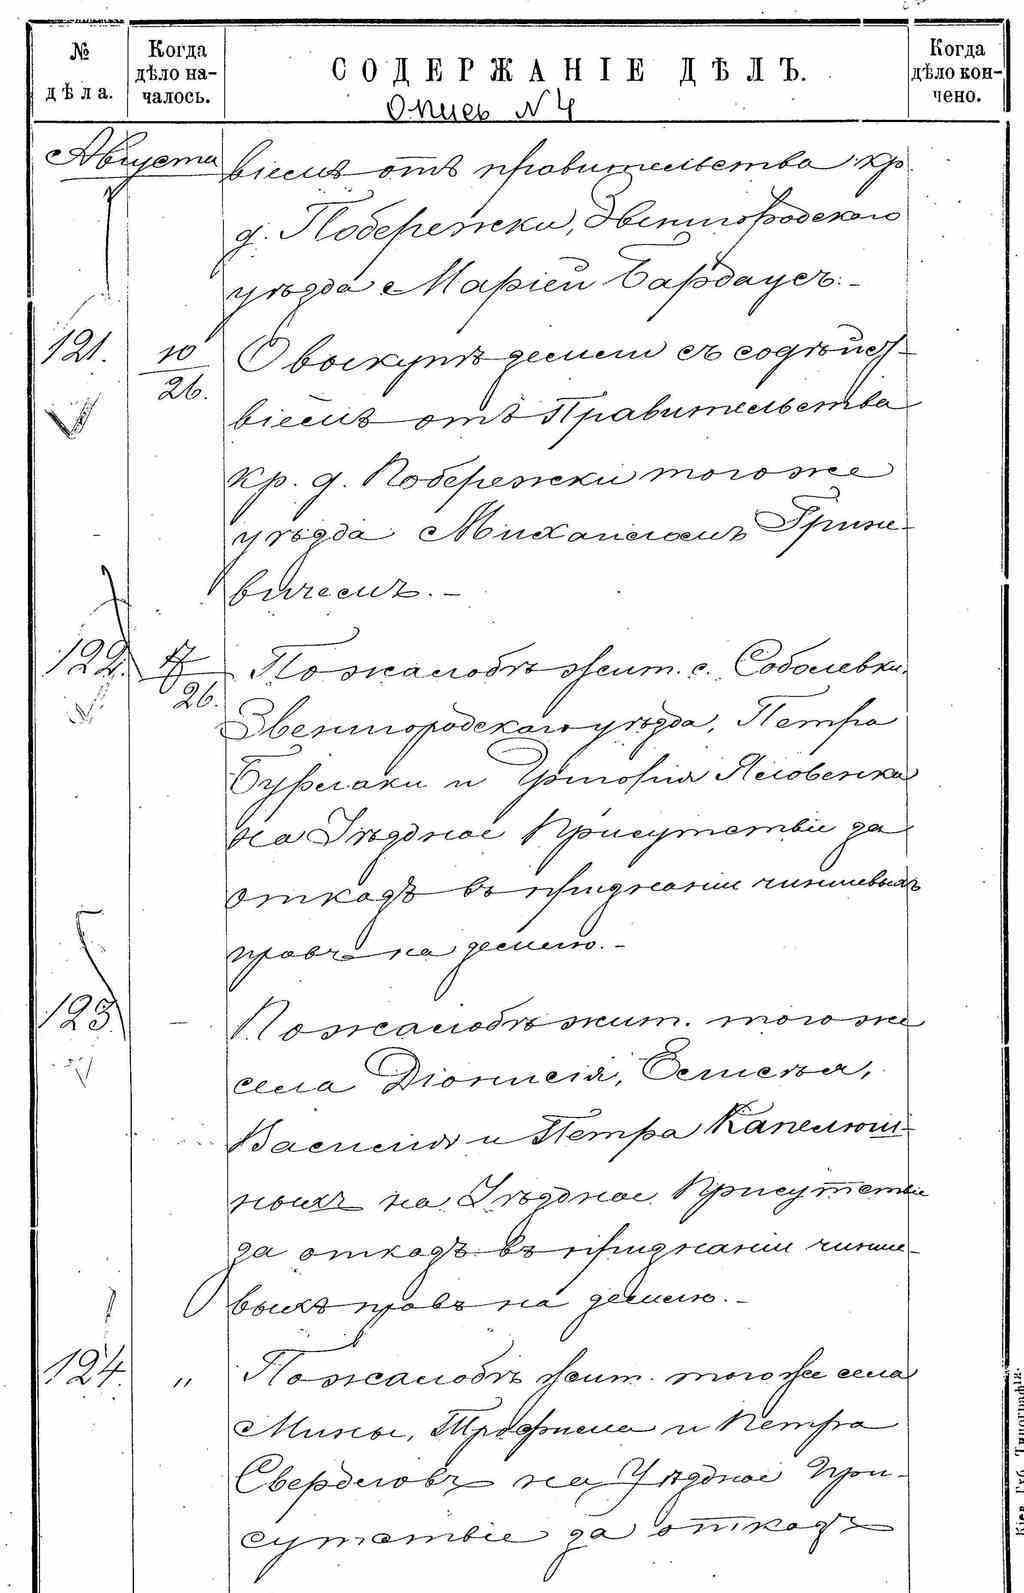 № дѣла.
Когда дѣло на-чалось.
СОДЕРЖАНІЕ ДѢЛЪ.
Когда дѣло кон-чено.
Опись N 4
Августа
віемъ отъ правительства кр.
д. Побережки, Звенигородскаго
уѣзда Маріей Бардаусъ. -
121.
10
26.
О выкупѣ земли съ содѣйст-
віемъ отъ Правительства
кр. д. Побережки того же
уѣзда Михаиломъ Грине-
вичемъ. -
122.
17
26.
По жалобѣ жит. с. Соболевки,
Звенигородскаго уѣзда, Петра
Бурлаки и Григорія Яловенка
на Уѣздное Присутствіе за
отказъ въ признаніи чиншевыхъ
правъ на землю. -
123.
-
По жалобѣ жит. того же
села Діонисія, Елисѣя,
Василія и Петра Капелюш-
ныхъ на Уѣздное Присутствіе
за отказъ въ признаніи чинше-
выхъ правъ на землю. -
124.
"
По жалобѣ жит. того же села
Мины, Трофима и Петра
Свердловъ на Уѣздное При-
сутствіе за отказъ
Кіев. Губ. Типографія.